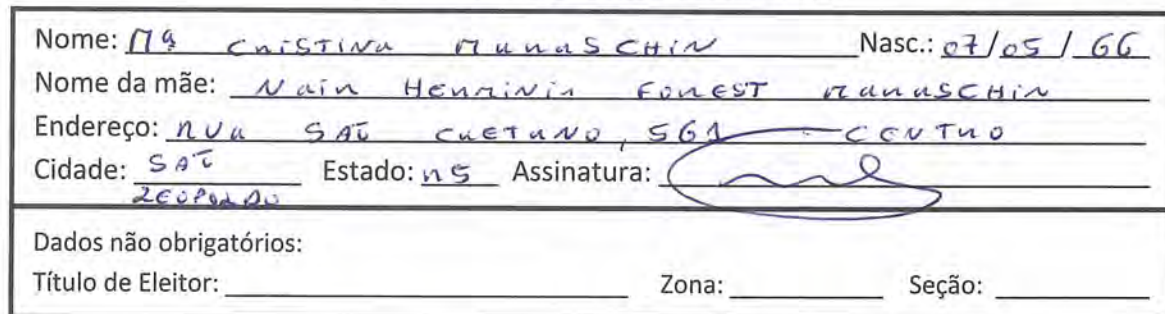 Nome: Mª CRISTINA MARASCHIN Nasc.: 07/05/66
Nome da mãe: NAIR HERMINIA FOREST MARASCHIN
Endereço: RUA SAÕ CAETANO, 561 CENTRO
Cidade: SAÕ LEOPOLDO Estado: RS Assinatura:
Dados não obrigatórios:
Título de Eleitor: Zona: Seção: